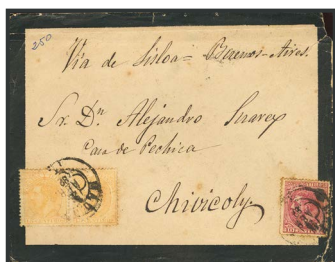 250
Via de Lisboa = Buenos-Aires.
Sr. Dn. Alejandro Suarez
Casa de Pechica
Chivicoly